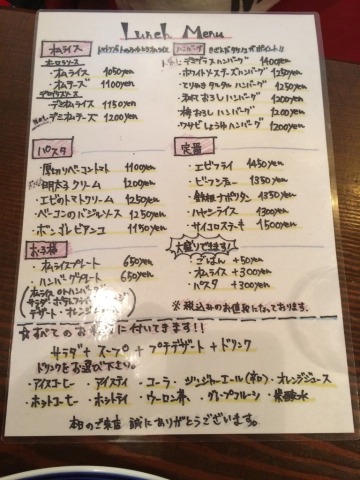 Lunch Menu
オムライス
トマトソース
・オムライス 1050yen
・オムチーズ 1100yen
デミグラスソース
・デミオムライス 1150yen
・デミオムチーズ 1200yen
ハンバーグ
・デミグラスハンバーグ 1400yen
・ホワイトソースチーズハンバーグ 1250yen
・てりやきタルタルハンバーグ 1250yen
・和風おろしハンバーグ 1200yen
・梅おろしハンバーグ 1200yen
・ワサビしょうゆハンバーグ 1200yen
パスタ
・厚切りベーコントマト 1100yen
・明太子クリーム 1200yen
・エビのトマトクリーム 1250yen
・ベーコンのバジルソース 1200yen
・ボンゴレビアンコ 1150yen
定番
・エビフライ 1450yen
・ビーフシチュー 1350yen
・鉄板ナポリタン 1350yen
・ハヤシライス 1300yen
・サイコロステーキ 1500yen
お子様
・オムライスプレート 650yen
・ハンバーグプレート 650yen
(オムライス orハンバーグ
サラダ・ポテトフライ
デザート・オレンジ
大盛りできます!
・ごはん +50yen
・オムライス +300yen
・パスタ +300yen
※税込みのお値段になっております。
☆すべてのお料理に付いてきます!!
サラダ + スープ + プチデザート + ドリンク
ドリンクをお選び下さい。
・アイスコーヒー ・アイスティ ・コーラ ・ジンジャーエール(辛口) ・オレンジジュース
・ホットコーヒー ・ホットティ ・ウーロン茶 ・グレープフルーツ ・炭酸水
本日のご来店 誠にありがとうございます。